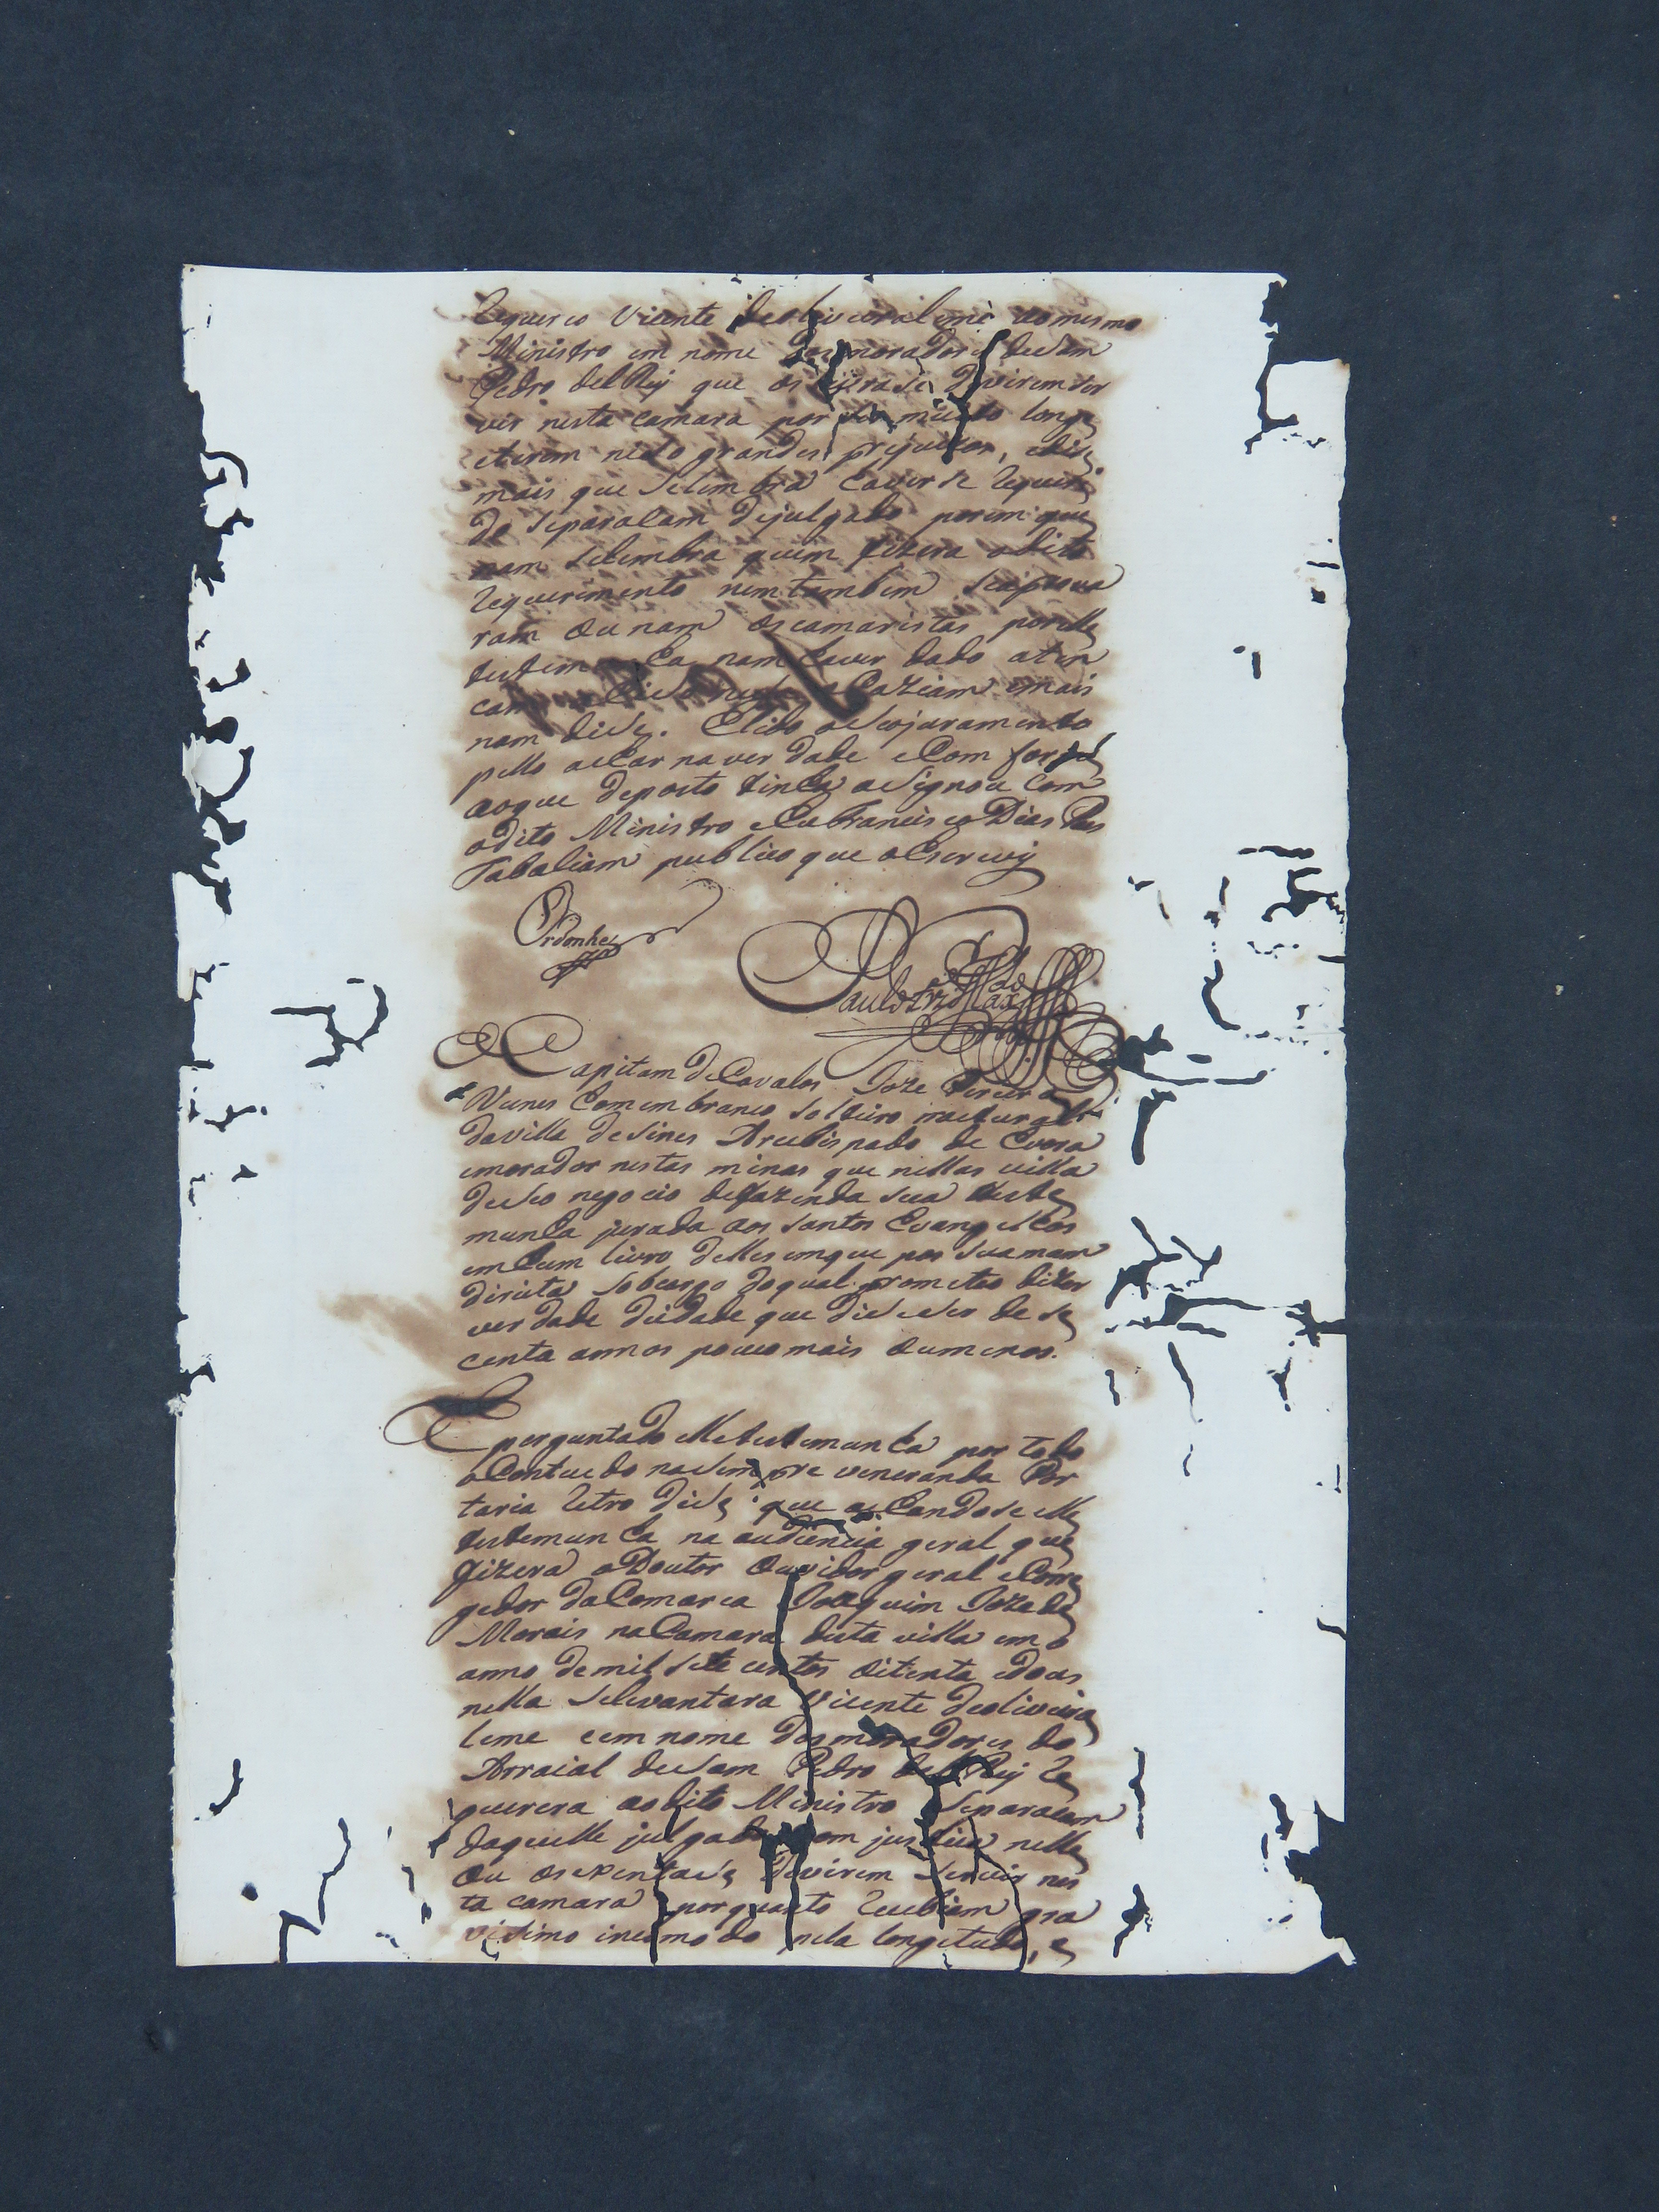 Requereo Vicente deoliveiraleme ao mesmo
Ministro em nome dos moradores deSam
Pedro delRey que os de virem ser
vir nesta camara por ser muito longe
eterem nisto grandes prejuizos, edis
mais que Selembra haverse requeri
do Separasam dejulgado porem que
nam Selembra quem fizera odito
requerimento nem tambem seaprova
ram ou nam os camaristas porelle
testemunha nam haver dado aten
faziam emais
nam dise. Elido oSeojuramento
pello achar na verdade eCom forme
aoque deposto tinha aSignou Com
odito Ministro eEuFrancisco Dias Paes
Tabaliam publico que oEscrevy
Ordonhes
Paulo
Capitam deCavalos Joze Pereira
Nunes homem branco Solteiro natural
davilla deSines Arcebispado de Evora
emorador nestas minas que nellas villa
deSeo negocio defazenda sua teste
munha jurada aos Santos Evangelhos
em hum livro delles emque pos Suamam
direita Sobcargo doqual prometeo dizer
verdade deidade que dise Ser de se
centa annos poucomais oumenos.
E perguntado elletestemunha por todo
oContheudo naSempre veneranda Por
taria retro dise que achandose elle
testemunha na audiencia geral que
fizera oDoutor Ouvidor geral eCorre
gedor daComarca Joaquim Joze de
Morais naCamara desta villa em o
anno demil Sete centos oitenta edous
nella Selevantara Vicente deoliveira
leme eem nome dos moradores do
Arraial deSam Pedro delRey re
querera aodito Ministro Separasam
daquelle julgado com justiça nelle
ou osexentase devirem Servir nes
ta camara porquanto recebiam gra
visimo incomodo pela longetude, e